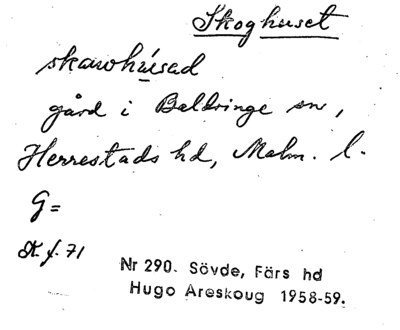 Skoghuset
skawhúsad
gård i Baldringe sn,
Herrestads hd, Malm. l.
G=
K f. 71
Nr 290. Sövde, Färs hd
Hugo Areskoug 1958-59.